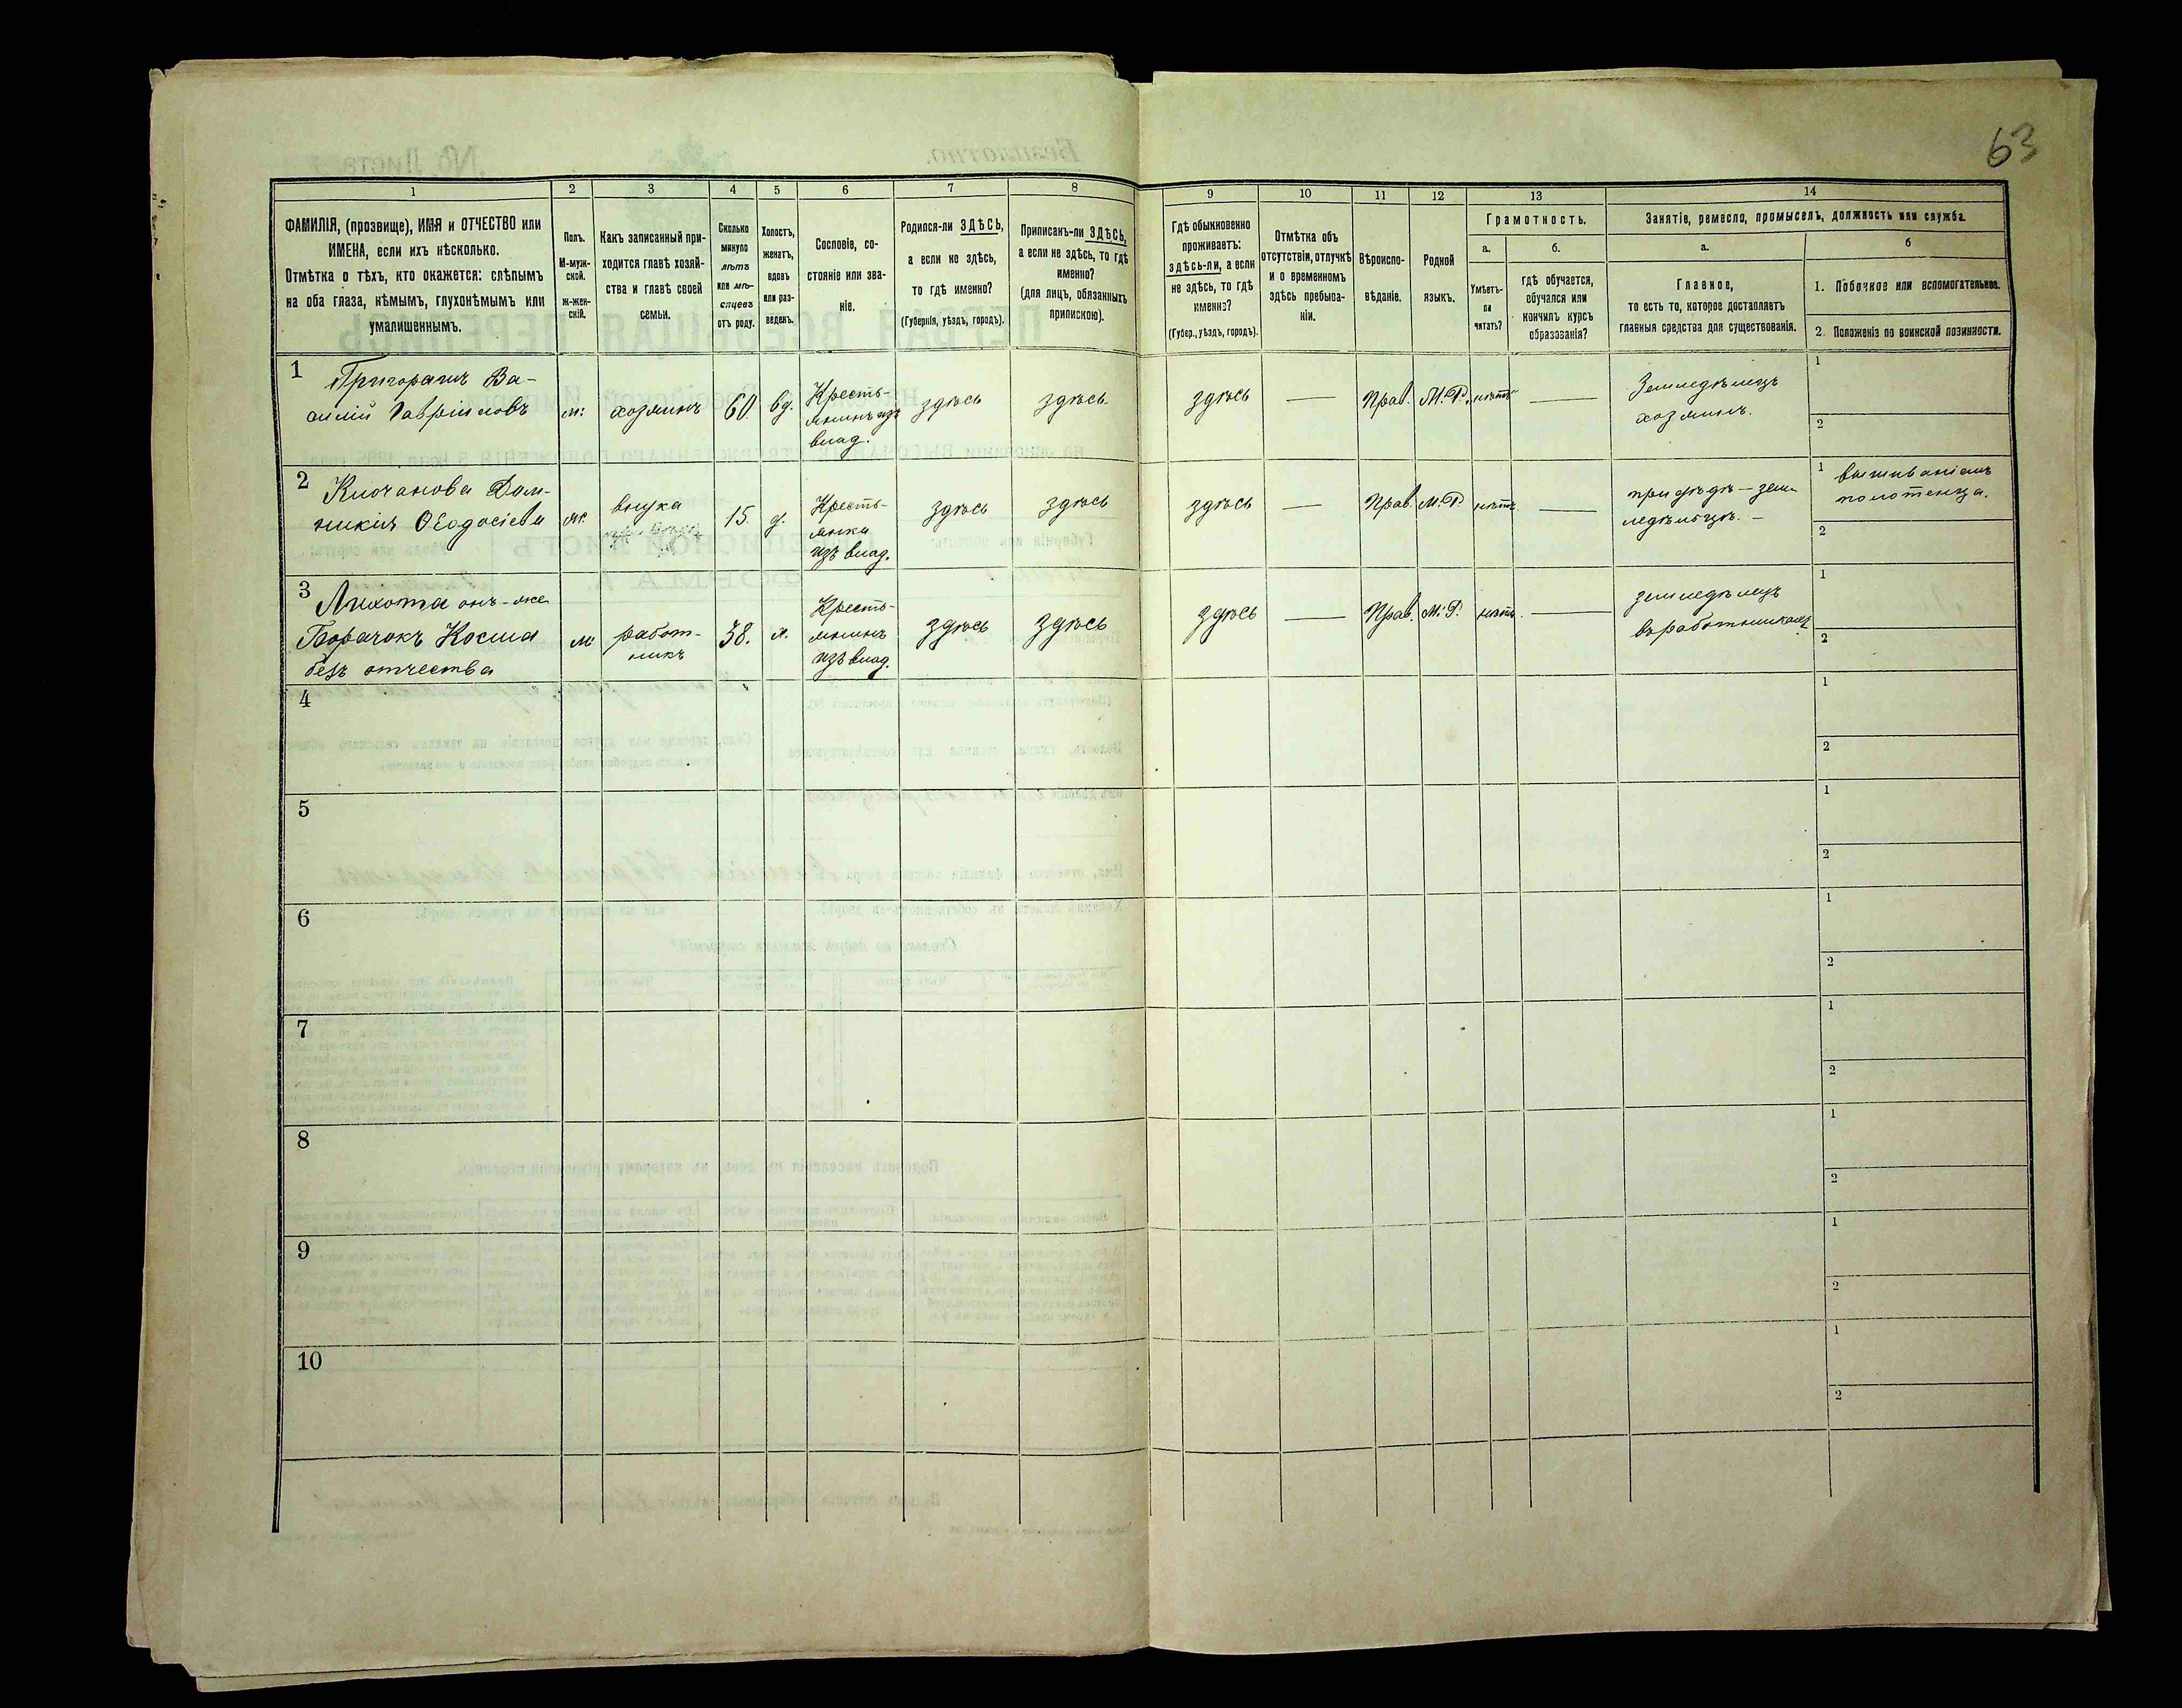 63
1 2 3 4 5 6 7 8 9 10 11 12 13 14
ФАМИЛІЯ, (прозвище), ИМЯ и ОТЧЕСТВО или
ИМЕНА, если ихъ нѣсколько.
Отмѣтка о тѣхъ, кто окажется: слѣпымъ
на оба глаза, нѣмымъ, глухонѣмымъ или
умалишеннымъ.
Полъ.
М-муж-
ской.
Ж-жен-
скій.
Какъ записанный при-
ходится главѣ хозяй-
ства и главѣ своей
семьи.
Сколько
минуло
лѣтъ
или мѣ-
сяцевъ
отъ роду.
Холостъ,
женатъ,
вдовъ
или раз-
веденъ.
Сословіе, со-
стояніе или зва-
ніе.
Родился-ли ЗДѢСЬ,
а если не здѣсь,
то гдѣ именно?
(Губернія, уѣздъ, городъ).
Приписанъ-ли ЗДѢСЬ,
а если не здѣсь, то гдѣ
именно?
(для лицъ, обязанныхъ
припискою).
Гдѣ обыкновенно
проживаетъ:
здѣсь-ли, а если
не здѣсь, то гдѣ
именно?
(Губер., уѣздъ, городъ).
Отмѣтка объ
отсутствіи, отлучкѣ
и о временномъ
здѣсь пребыва-
ніи.
Вѣроиспо-
вѣданіе.
Родной
языкъ.
Грамотность.
а.
Умѣетъ-
ли
читать?
б.
гдѣ обучается,
обучался или
кончилъ курсъ
образованія?
Занятіе, ремесло, промыселъ, должность или служба.
а.
Главное,
то есть то, которое доставляетъ
главныя средства для существованія.
б
1. Побочное или вспомогательное.
2. Положеніе по воинской повинности.
1 Григорашъ Ва-
силій Гавріиловъ
м:
хозяинъ
60.
вд.
Кресть-
янинъ изъ
влад.
здѣсь
здѣсь
здѣсь
—
Прав.
М.Р.
нѣтъ
—
Земледѣлецъ
хозяинъ.
1
2
2 Клочанова Дом-
никія Ѳеодосіева
ж:
внука
15.
д.
Кресть-
янка
изъ влад.
здѣсь
здѣсь
здѣсь
—
Прав.
М.Р.
нѣтъ
—
при дѣдѣ — зем-
ледѣльцѣ. —
1 вышиваніемъ
полотенца.
2
3 Лихота онъ-же
Борачокъ Косма
безъ отчества
м:
работ-
никъ
38.
х.
Кресть-
янинъ
изъ влад.
здѣсь
здѣсь
здѣсь
—
Прав.
М.Р.
нѣтъ
—
земледѣлецъ
въ работникахъ.
1
2
4
1
2
5
1
2
6
1
2
7
1
2
8
1
2
9
1
2
10
1
2